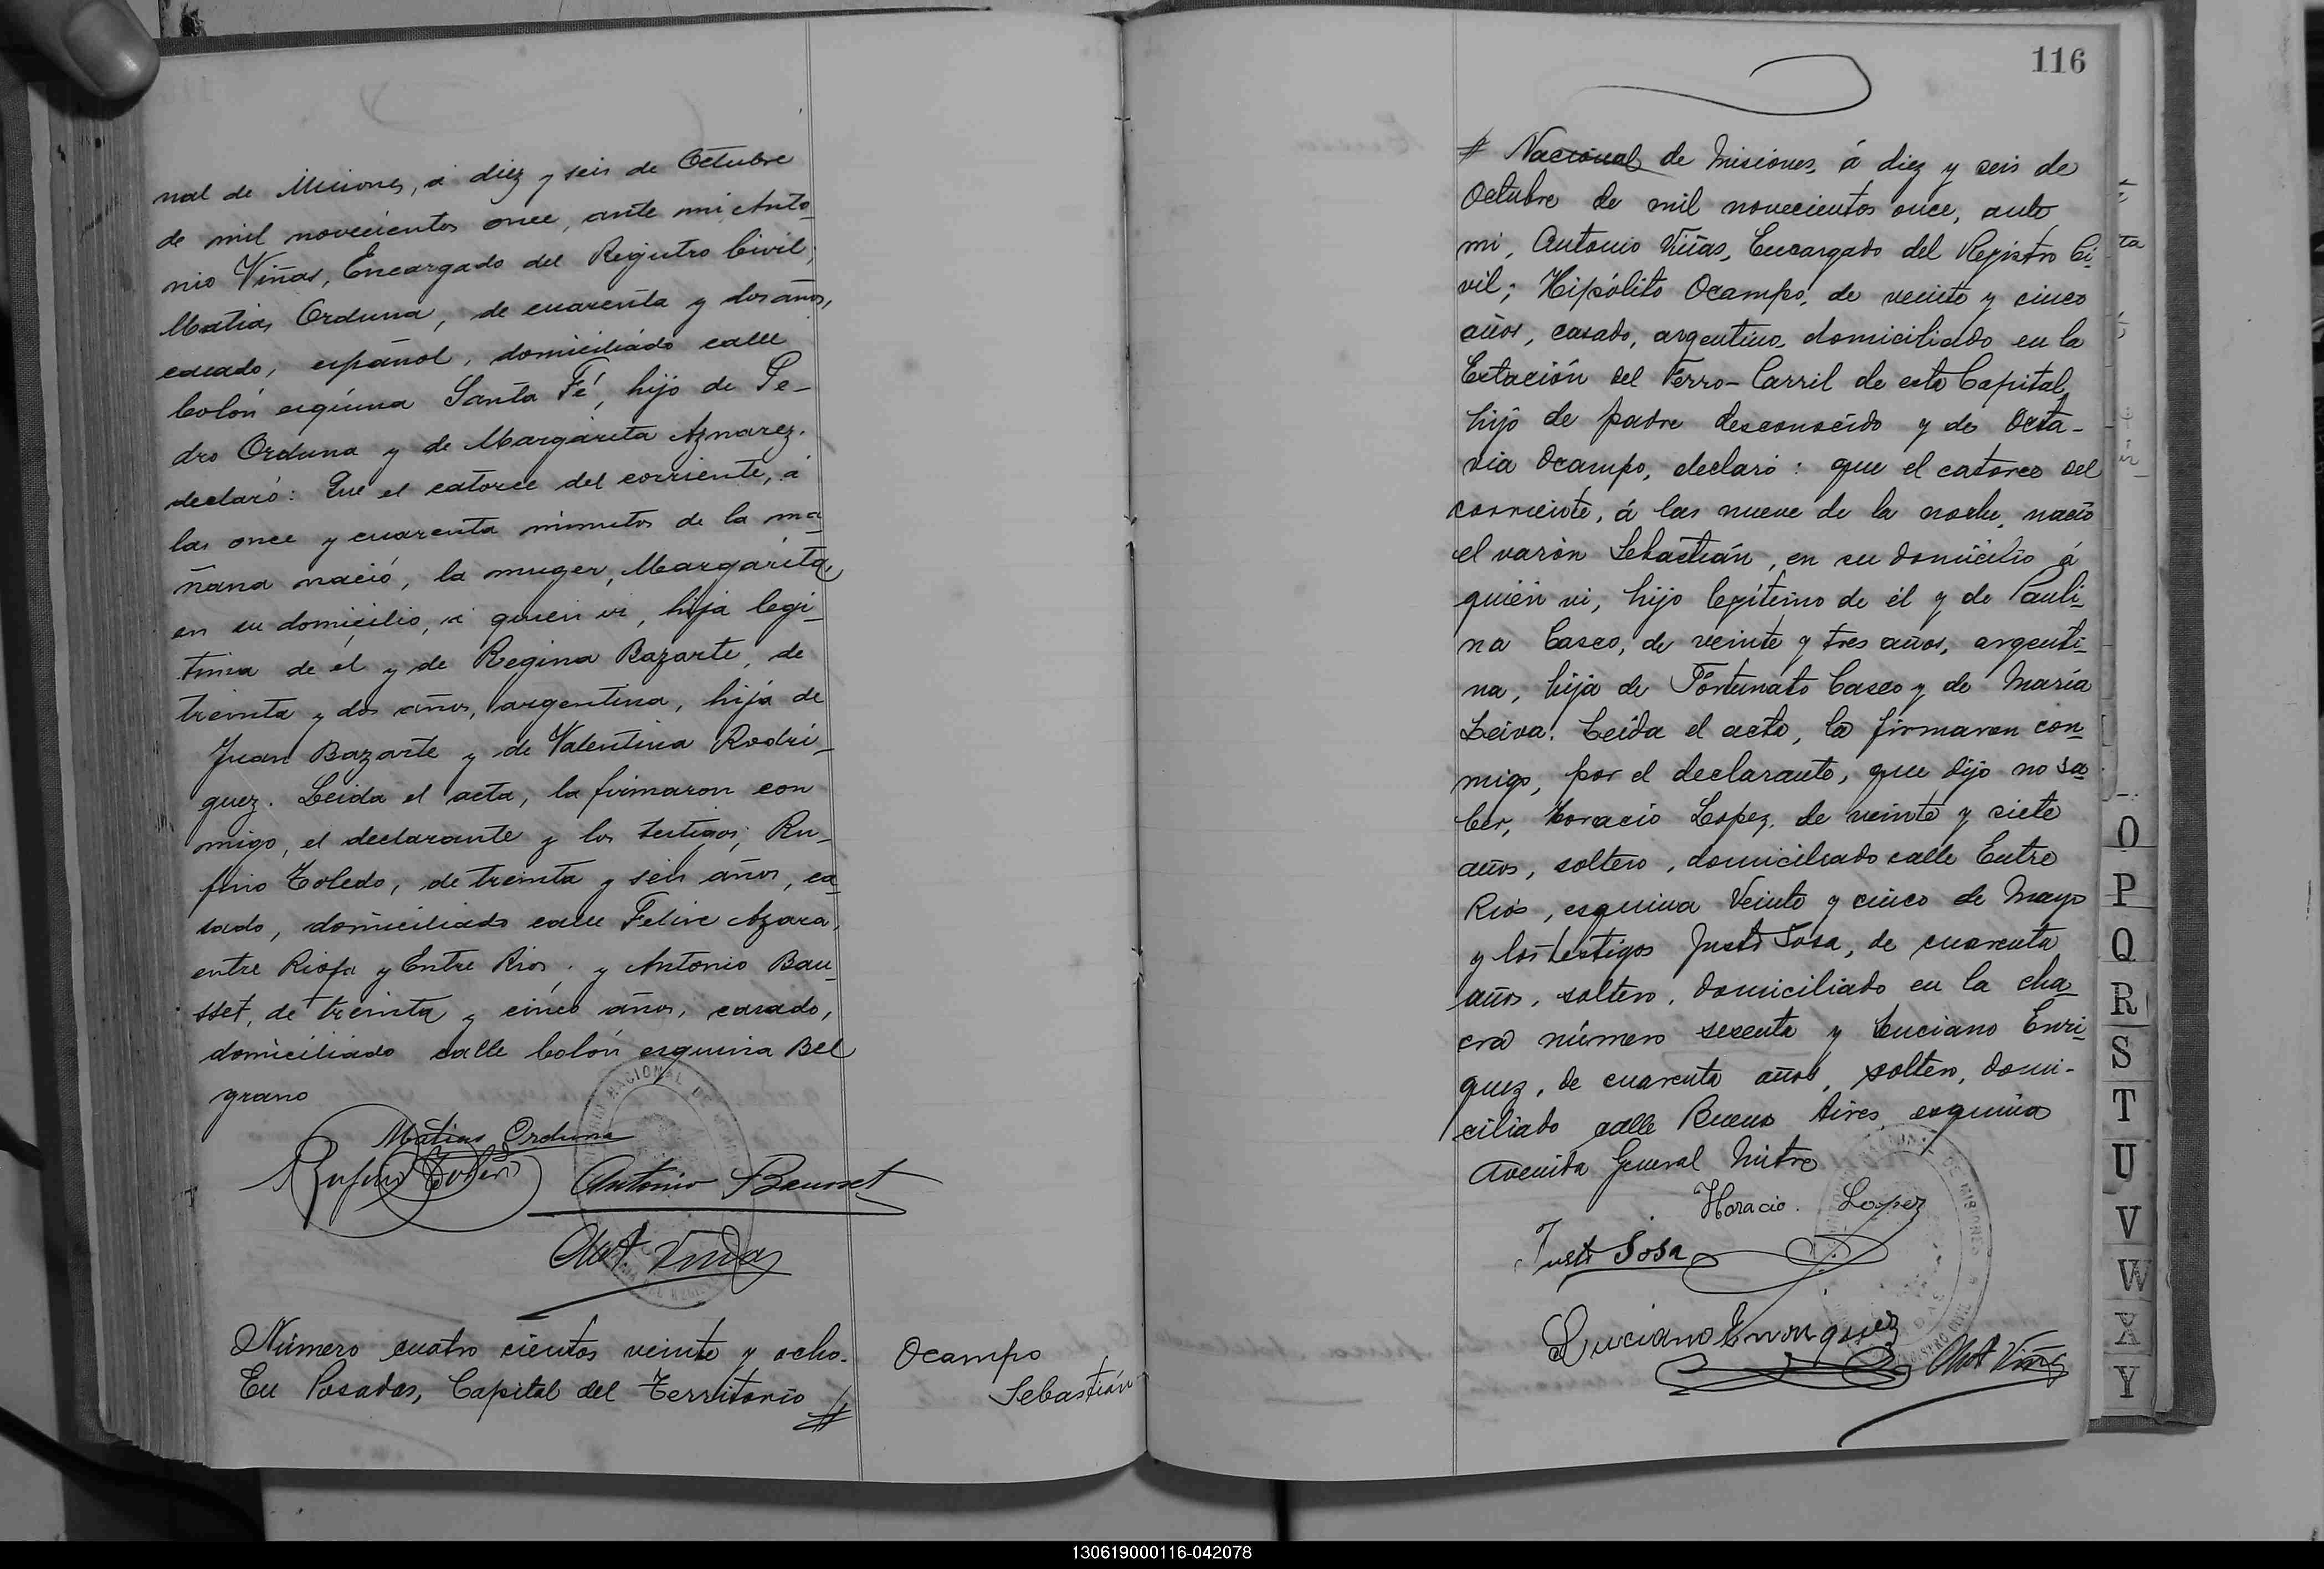 nal de Misiones, á diez y seis de Octubre
de mil novecientos once, ante mi, Anto-
nio Viñas, Encargado del Registro Civil;
Matias Orduna, de cuarenta y dos años,
casado, español, domiciliado calle
Colón esquina Santa Fé, hijo de Pe-
dro Orduna y de Margarita Aznarez.
declaró: Que el catorce del corriente, á
las once y cuarenta minutos de la ma-
ñana nació, la muger, Margarita,
en su domicilio, á quien vi, hija legi-
tima de él y de Regina Bazarte, de
treinta y dos años, argentina, hija de
Juan Bazarte y de Valentina Rodri-
guez. Leida el acta, la firmaron con
migo, el declarante y los testigos; Ru-
fino Toledo, de treinta y seis años, ca-
sado, domiciliado calle Felix Azara,
entre Rioja y Entre Rios. y Antonio Bau-
sset, de treinta y cinco años, casado,
domiciliado calle Colón esquina Bel
grano
Matias Orduna
Rufino Toledo Antonio Bausset
Ant. Viñas
Número cuatro cientos veinte y ocho.
En Posadas, Capital del Territorio #
Ocampo
Sebastián
116
# Nacional de Misiones, á diez y seis de
Octubre de mil novecientos once, ante
mi, Antonio Viñas, Encargado del Registro Ci-
vil; Hipólito Ocampo, de veinte y cinco
años, casado, argentino, domiciliado en la
Estación del Ferro-Carril de esta Capital,
hijo de padre desconocido y de Octa-
via Ocampo, declaró: que el catorce del
corriente, á las nueve de la noche, nació
el varón Sebastián, en su domicilio á
quién vi, hijo legítimo de él y de Pauli-
na Casco, de veinte y tres años, argenti-
na, hija de Fortunato Casco y de María
Leiva. Leída el acta, la firmaron con-
migo, por el declarante, que dijo no sa-
ber, Horacio Lopez, de veinte y siete
años, soltero, domiciliado calle Entre
Rios, esquina Veinte y cinco de Mayo
y los testigos Justo Sosa, de cuarenta
años, soltero, domiciliado en la cha-
cra número sesenta y Luciano Enri-
quez, de cuarenta años, soltero, domi-
ciliado calle Buenos Aires esquina
Avenida General Mitre
Horacio. Lopez
Justo Sosa
Luciano Enriquez Ant Viñas
O
P
Q
R
S
T
U
V
W
X
Y
130619000116-042078